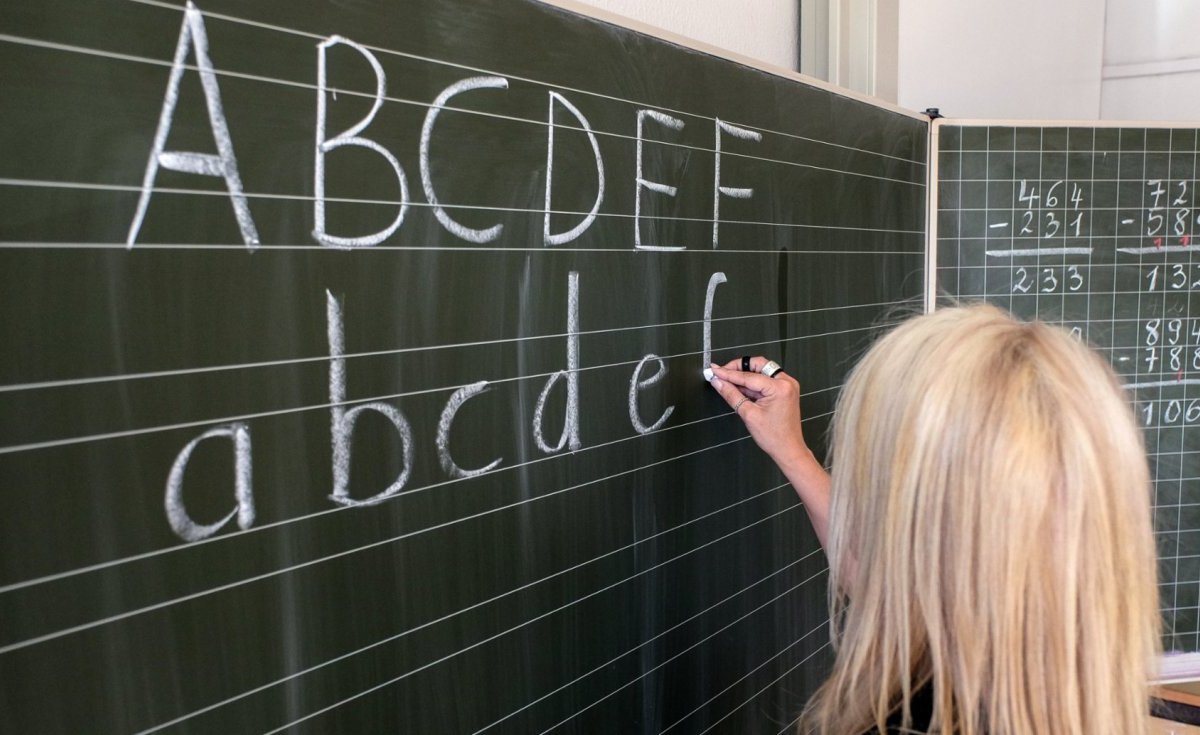 A B C D E F
a b c d e
464
- 231
233
72
- 58
13
894
- 788
106